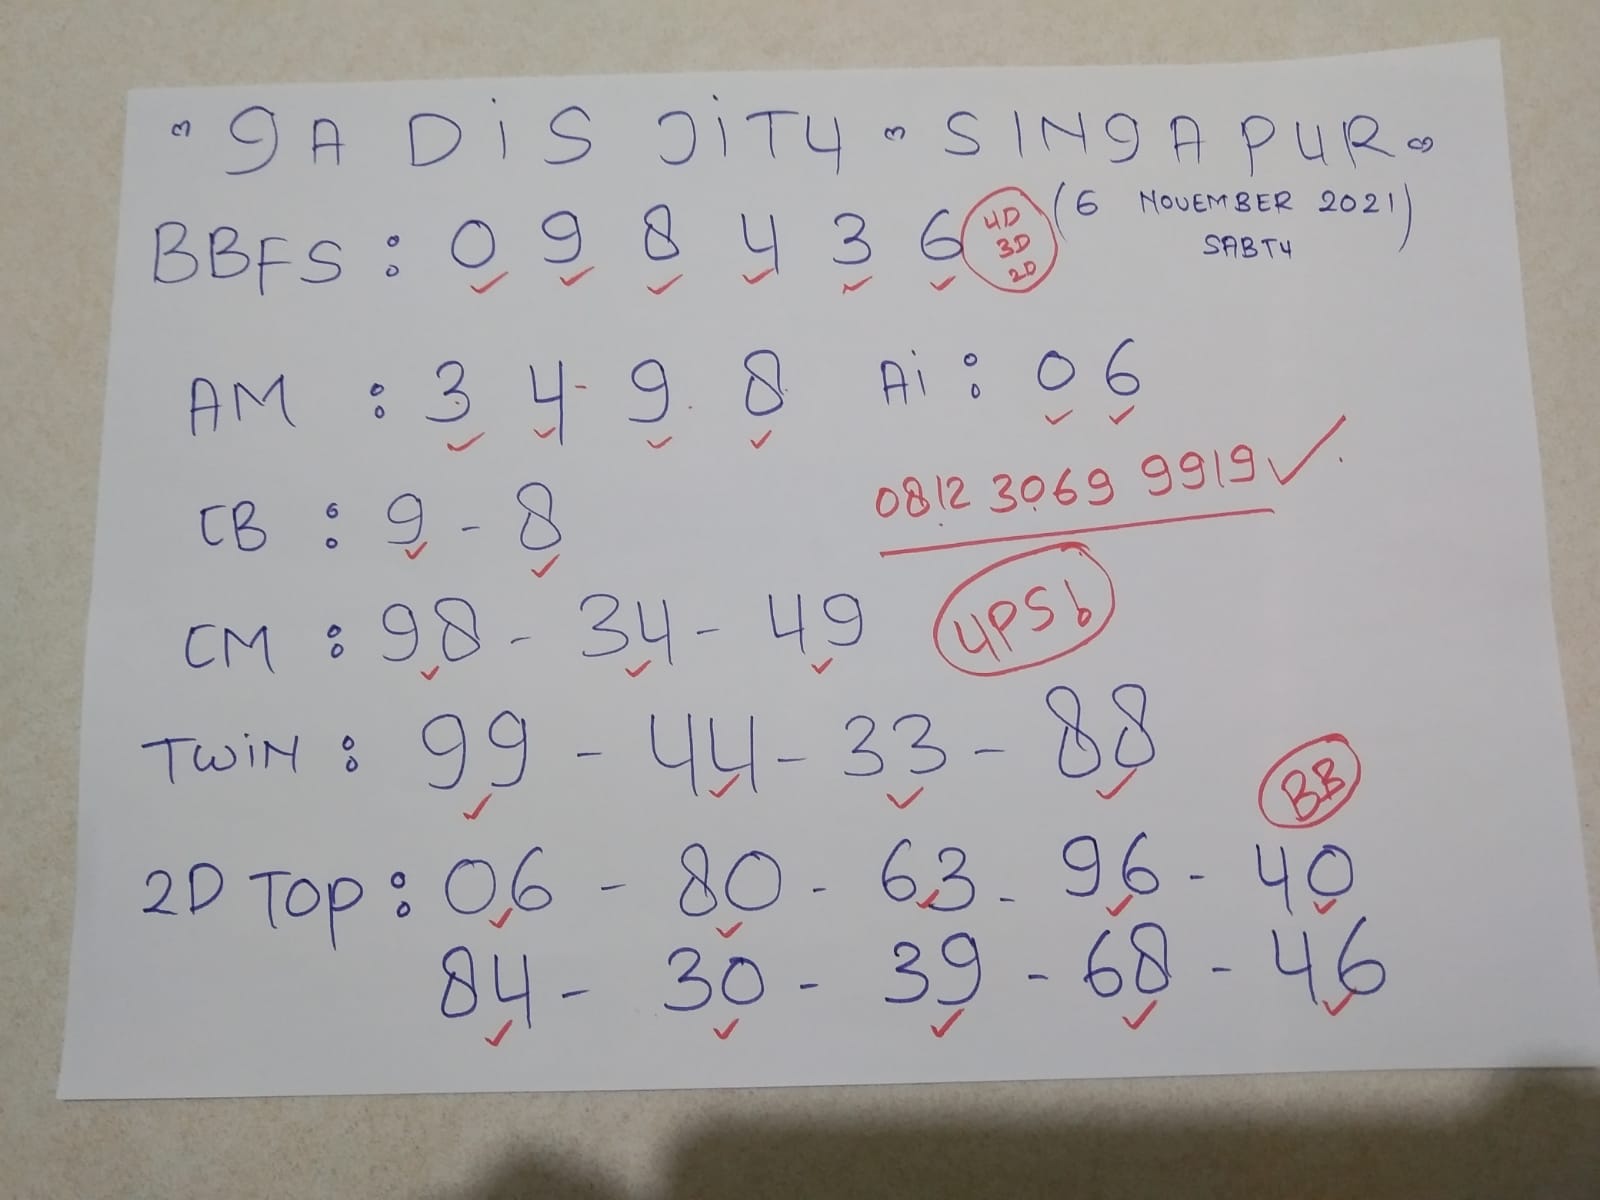 GADIS JITU ∞ SINGAPUR ∞
BBFS : 0 9 8 4 3 6
4D
3D
2D
(6 NOVEMBER 2021)
SABTU
AM : 3 4 9 8
Ai : 0 6
0812 3069 9919
CB : 9 - 8
CM : 98 - 34 - 49
UPSb
TWiN : 99 - 44 - 33 - 88
BB
2D TOP : 06 - 80 - 63 - 96 - 40
84 - 30 - 39 - 68 - 46